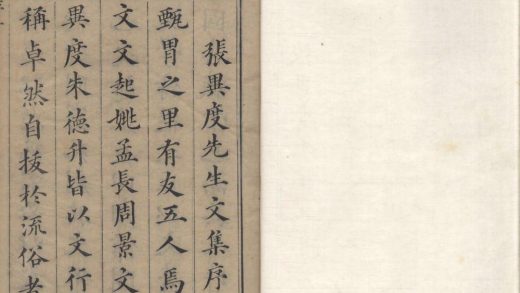 張異度先生文集序
甄胄之里有友五人焉
文文起姚孟長周景文
異度朱德升皆以文行
稱卓然自拔於流俗者